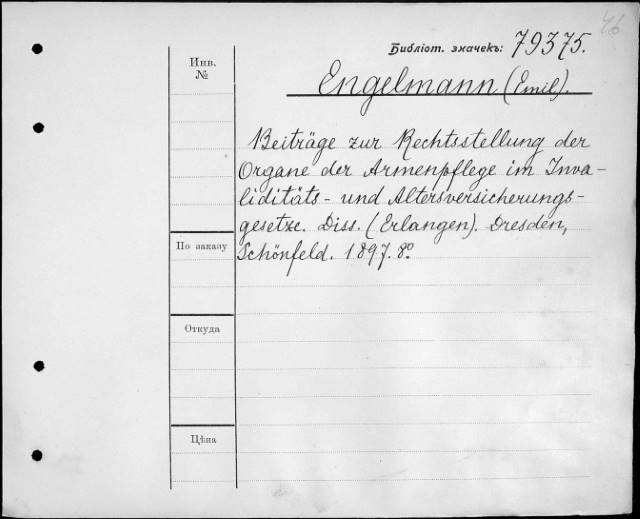 46
Библіот. значекъ: 79375.
Инв.
№
Engelmann (Emil).
Beiträge zur Rechtsstellung der
Organe der Armenpflege im Inva-
liditäts- und Altersversicherungs-
gesetze. Diss. (Erlangen). Dresden,
По заказу
Schönfeld. 1897. 8º
Откуда
Цѣна